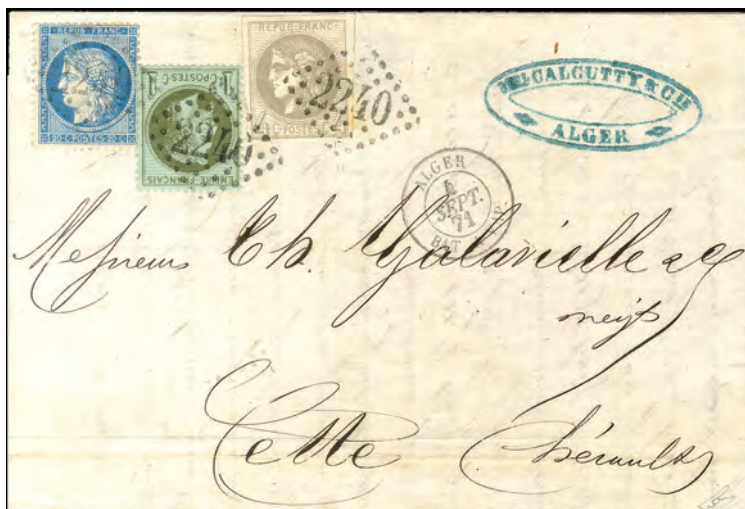 REPUB. FRANC.
20 C. POSTES 20 C.
1 C POSTES C 1
EMPIRE FRANÇAIS
REPUB. FRANC.
4 C. POSTES 4
2240
2240
CALCUTTY & CIE
ALGER
ALGER
SEPT.
71
BAT
Messieurs Ch. Galavielle & C
Cette Hérault